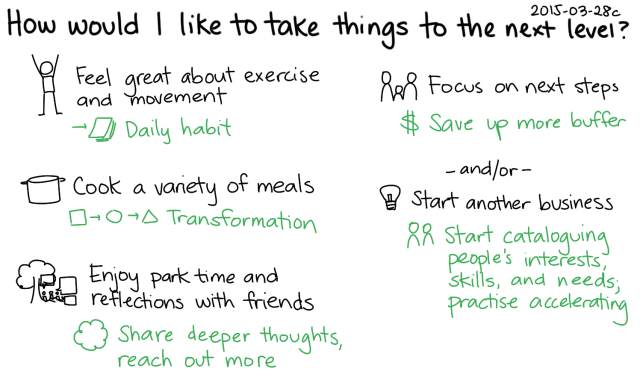 2015-03-28c
How would I like to take things to the next level?
Feel great about exercise
and movement
→ Daily habit
Cook a variety of meals
□→○→△ Transformation
Enjoy park time and
reflections with friends
Share deeper thoughts,
reach out more
Focus on next steps
$ Save up more buffer
- and/or -
Start another business
Start cataloguing
people's interests,
skills, and needs;
practise accelerating